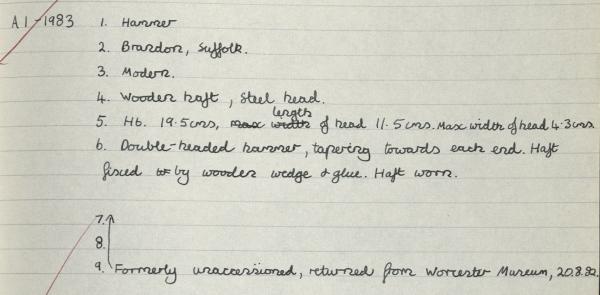 A1-1983 1. Hammer
2. Brandon, Suffolk.
3. Modern.
4. Wooden haft, steel head.
5. Ht. 19.5cms, max width length of head 11.5cms. Max width of head 4.3cms
6. Double-headed hammer, tapering towards each end. Haft
fixed by wooden wedge & glue. Haft worn.
7.
8.
9. Formerly unaccessioned, returned from Worcester Museum, 20.8.82.